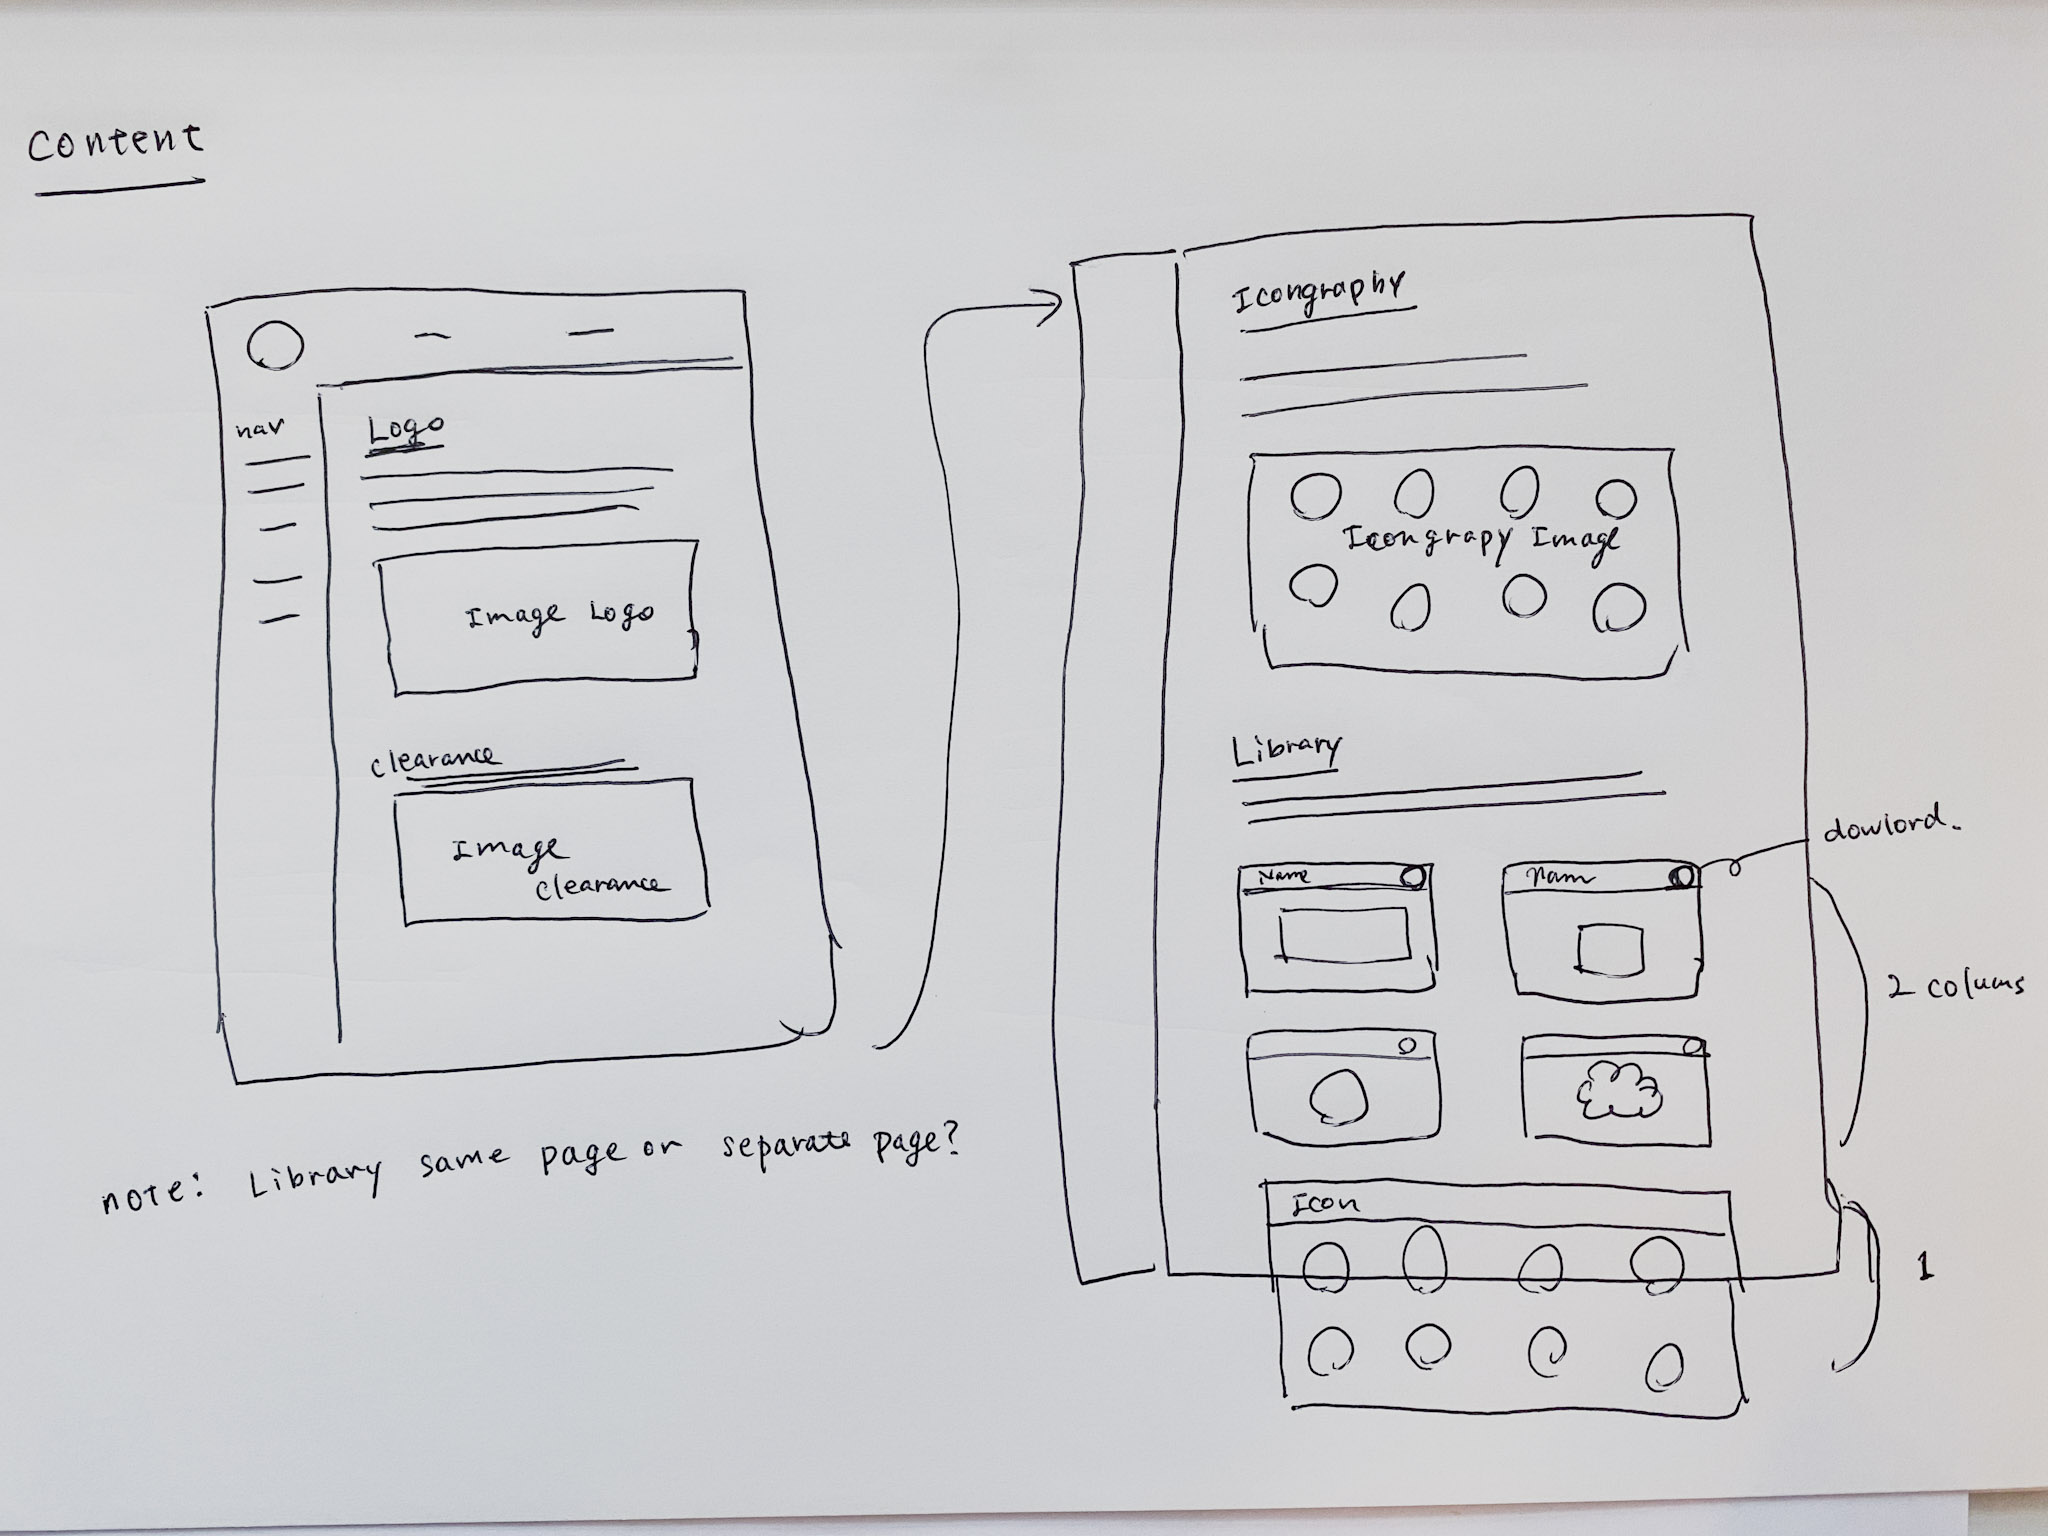 Content
nav
Logo
Image Logo
clearance
Image
clearance
note: Library same page or separate page?
Icongraphy
Icongrapy Image
Library
dowlord.
Name
Nam
2 colums
Icon
1